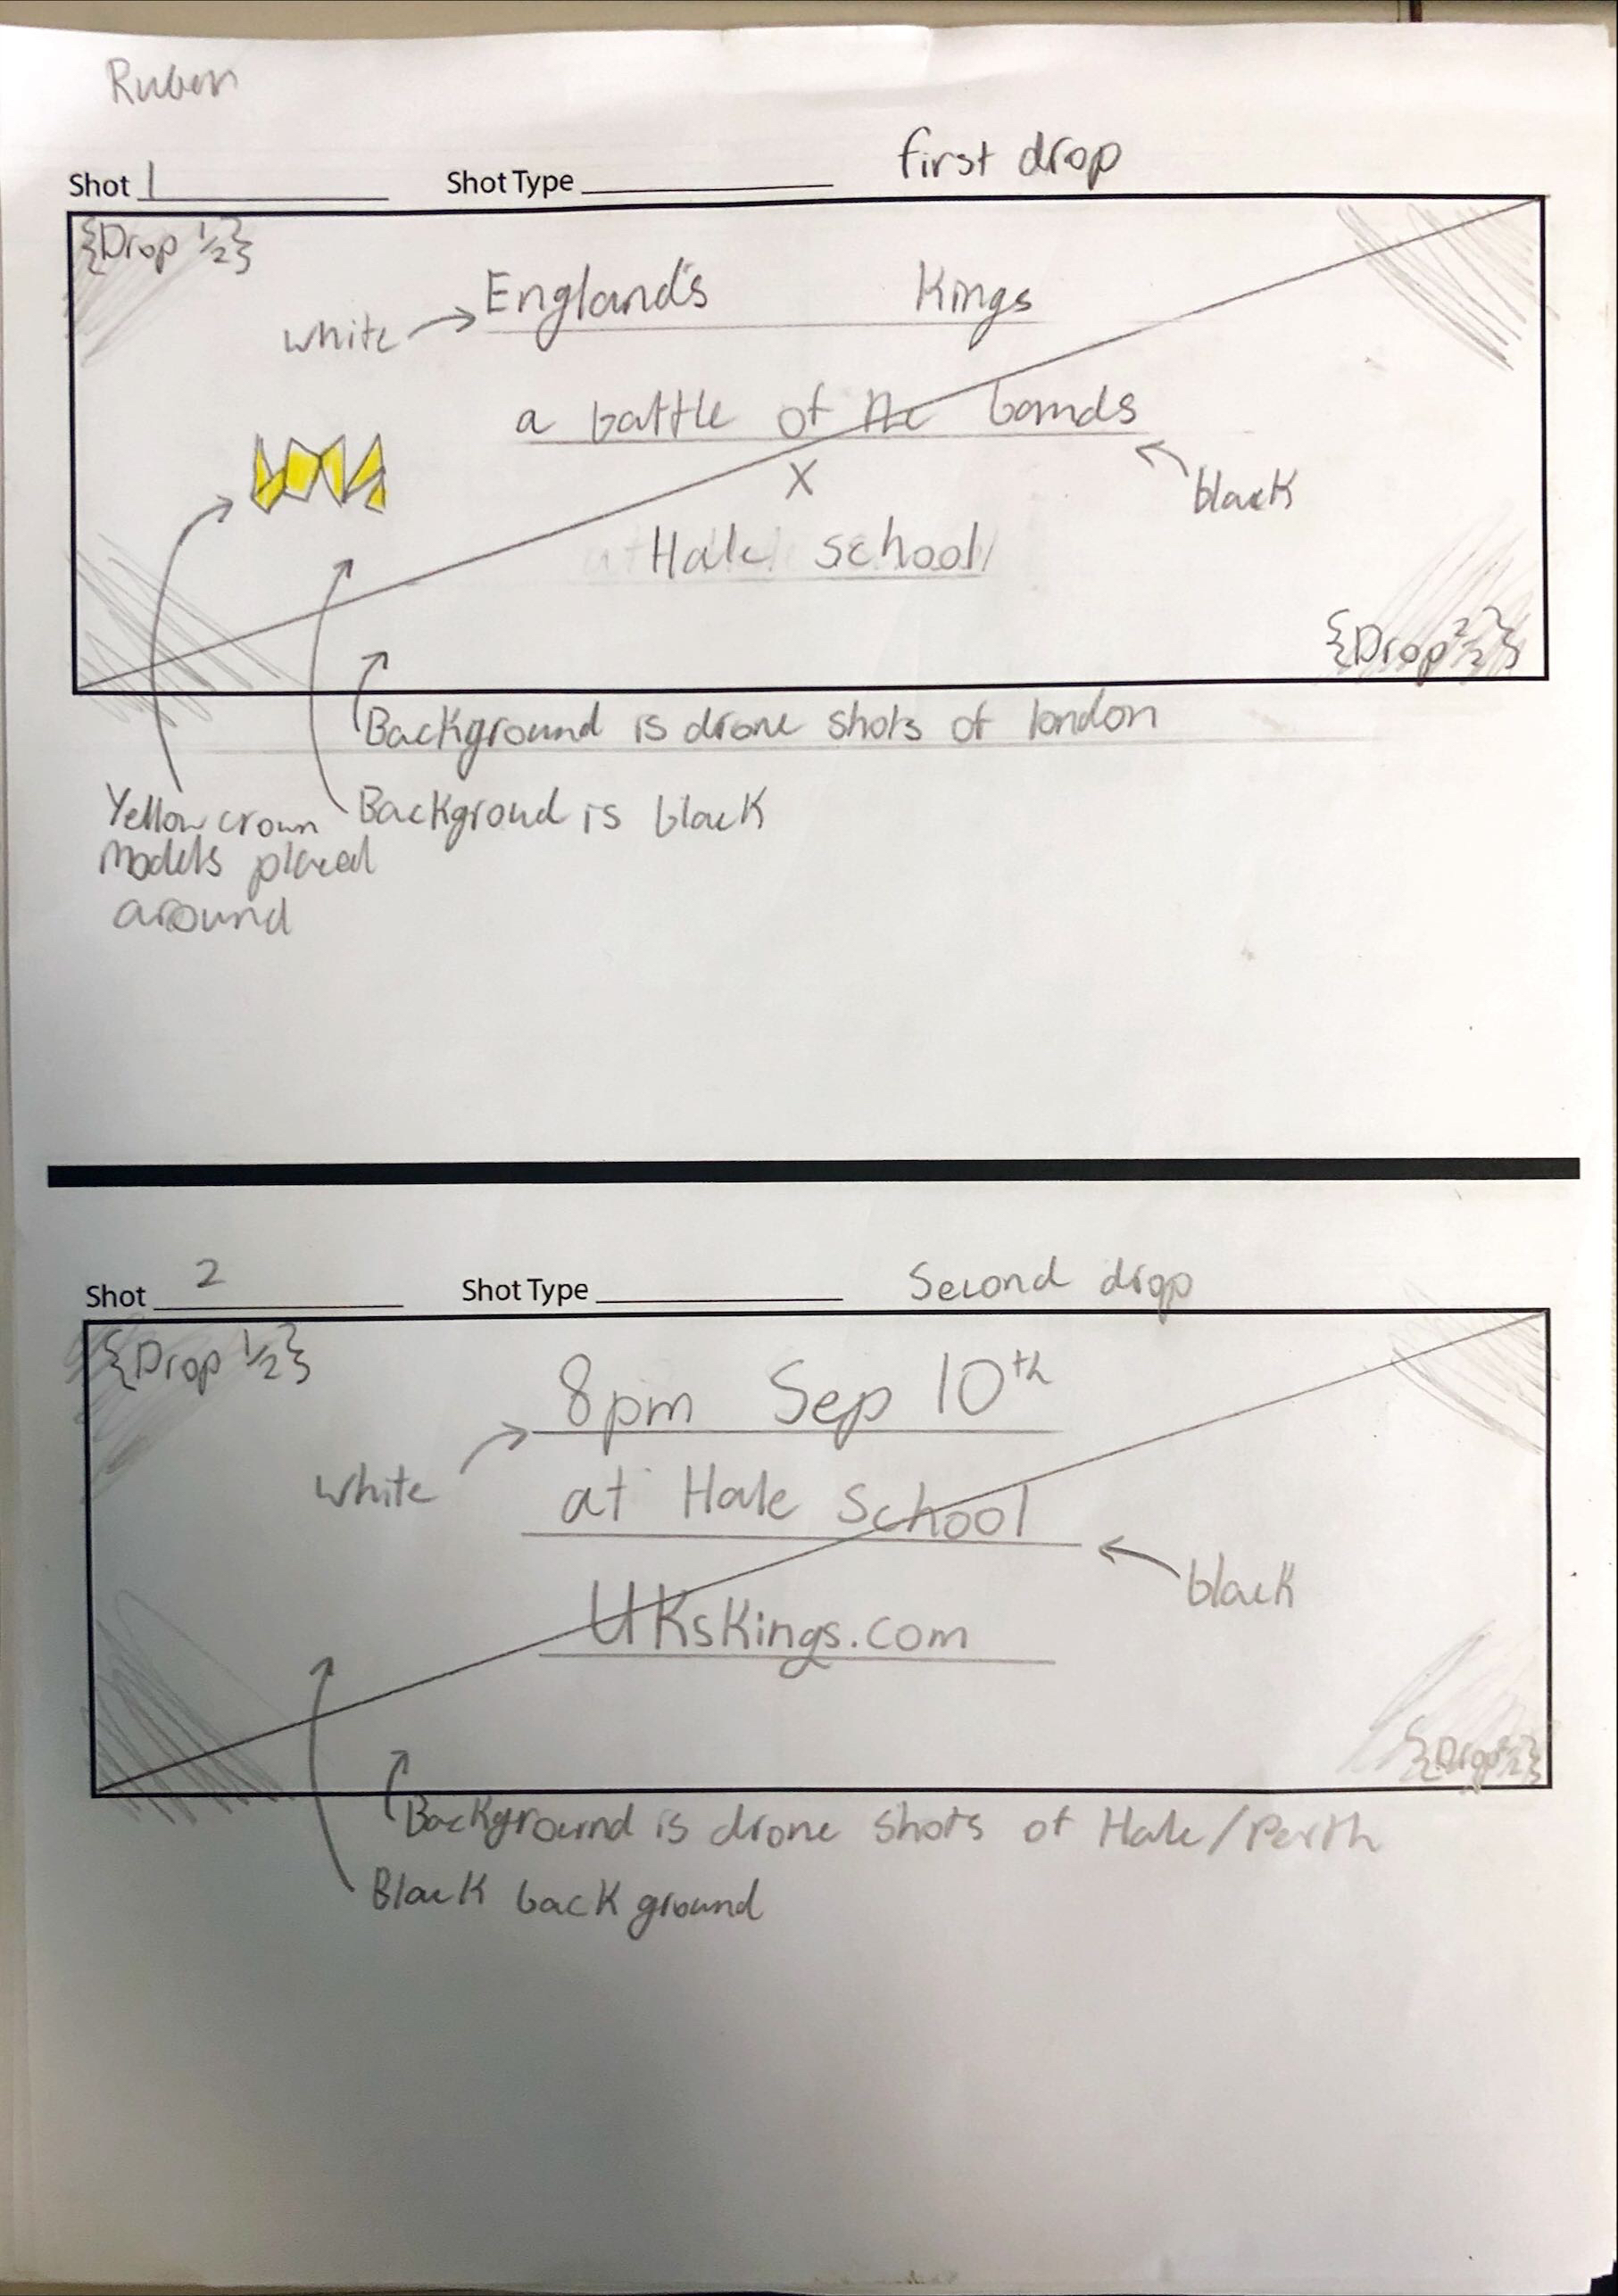 Ruben
Shot 1 Shot Type first drop
{Drop 1/2}
England's Kings
white
a battle of the bands
X
black
Hale school
{Drop 2/2}
Background is drone shots of london
Yellow crown
Models placed
around
Backgroud is black
Shot 2 Shot Type Second drop
{Drop 1/2}
8pm Sep 10th
white
at Hale School
black
UKsKings.com
{Drop 2/2}
Background is drone shots of Hale/Perth
Black back ground